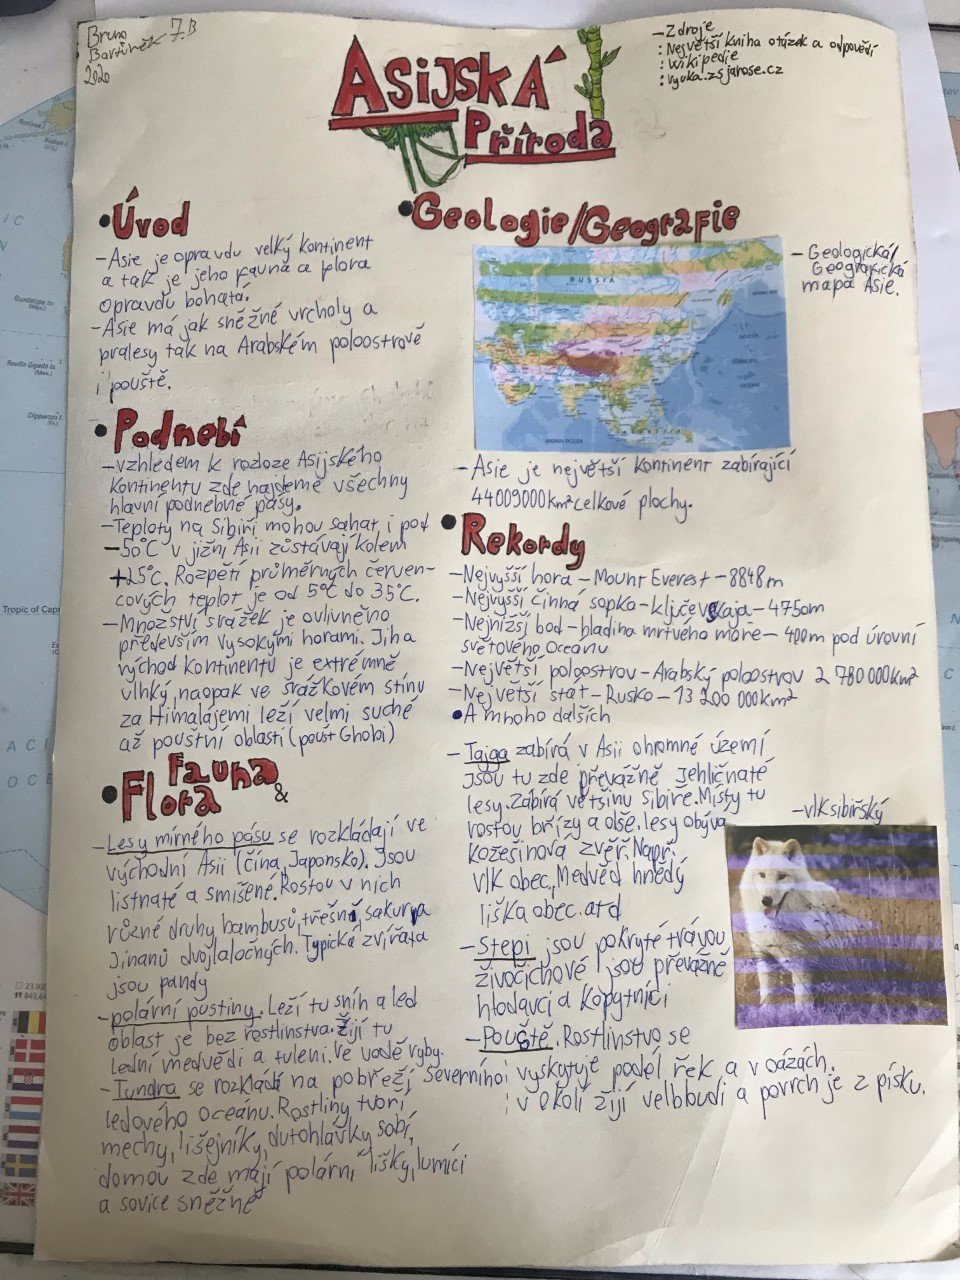 Bruno
Bartůněk 7.B
2020
Asijská
Příroda
- Zdroje
: Největší kniha otázak a odpovědí
: Wikipedie
: vyuka.zsjarose.cz
• Úvod
- Asie je opravdu velký kontinent
a tak je jeho fauna a flora
opravdu bohatá.
- Asie má jak sněžné vrcholy a
pralesy tak na Arabském poloostrově
i pouště.
• Podnebí
- vzhledem k rozloze Asijského
kontinentu zde najdeme všechny
hlavní podnebné pásy.
- Teploty na Sibiři mohou sahat i pod
-50°C v jižní Asii zůstávají kolem
+25°C. Rozpětí průměrných červen-
cových teplot je od 5°C do 35°C.
- Množství srážek je ovlivněno
především vysokými horami. Jiho
východ kontinentu je extrémně
vlhký, naopak ve srážkovém stínu
za Himalájemi leží velmi suché
až pouštní oblasti (poušť Ghobi)
• Fauna
& Flora
- Lesy mírného pásu se rozkládají ve
východní Asii (čína, Japonsko). Jsou
listnaté a smíšené. Rostou v nich
různé druhy bambusů, třešně, sakurya
Jinanů dvojlaločných. Typická zvířata
jsou pandy
- polární pustiny. Leží tu sníh a led
oblast je bez rostlinstva. Žijí tu
Lední medvědi a tuleni. Ve vodě ryby.
- Tundra se rozkládá na pobřeží Severního
ledového oceánu. Rostliny tvoří
mechy, lišejníky, dutohlávky sobí,
domov zde mají polární lišky, lumíci
a sovice sněžné
• Geologie/Geografie
RUSSIA
INDIAN OCEAN
- Geologická/
Geografická
mapa Asie.
- Asie je největší kontinent zabírající
44009000km² celkové plochy.
• Rekordy
- Nejvyšší hora - Mount Everest - 8848m
- Nejvyšší činná sopka - ključevskaja - 4750m
- Nejnižší bod - hladina mrtvého moře - 400m pod úrovní
světového Oceánu
- Největší poloostrov - Arabský poloostrov 2 780 000km²
- Největší stát - Rusko - 13 200 000km²
• A mnoho dalších
- Tajga zabírá v Asii ohromné území
jsou tu zde převážně Jehličnaté
lesy. Zabírá většinu Sibiře. Místy tu
rostou břízy a olše. lesy obývá
kožešinová zvěř. Např.
vlk obec., Medvěd hnědý
liška obec. atd
- vlk sibiřský
- Stepi jsou pokryté trávou
živočichové jsou převážně
hlodavci a kopytníci
- Pouště. Rostlinstvo se
vyskytuje podél řek a v oázách.
v okolí žijí velbloudi a povrch je z písku.
Tropic of